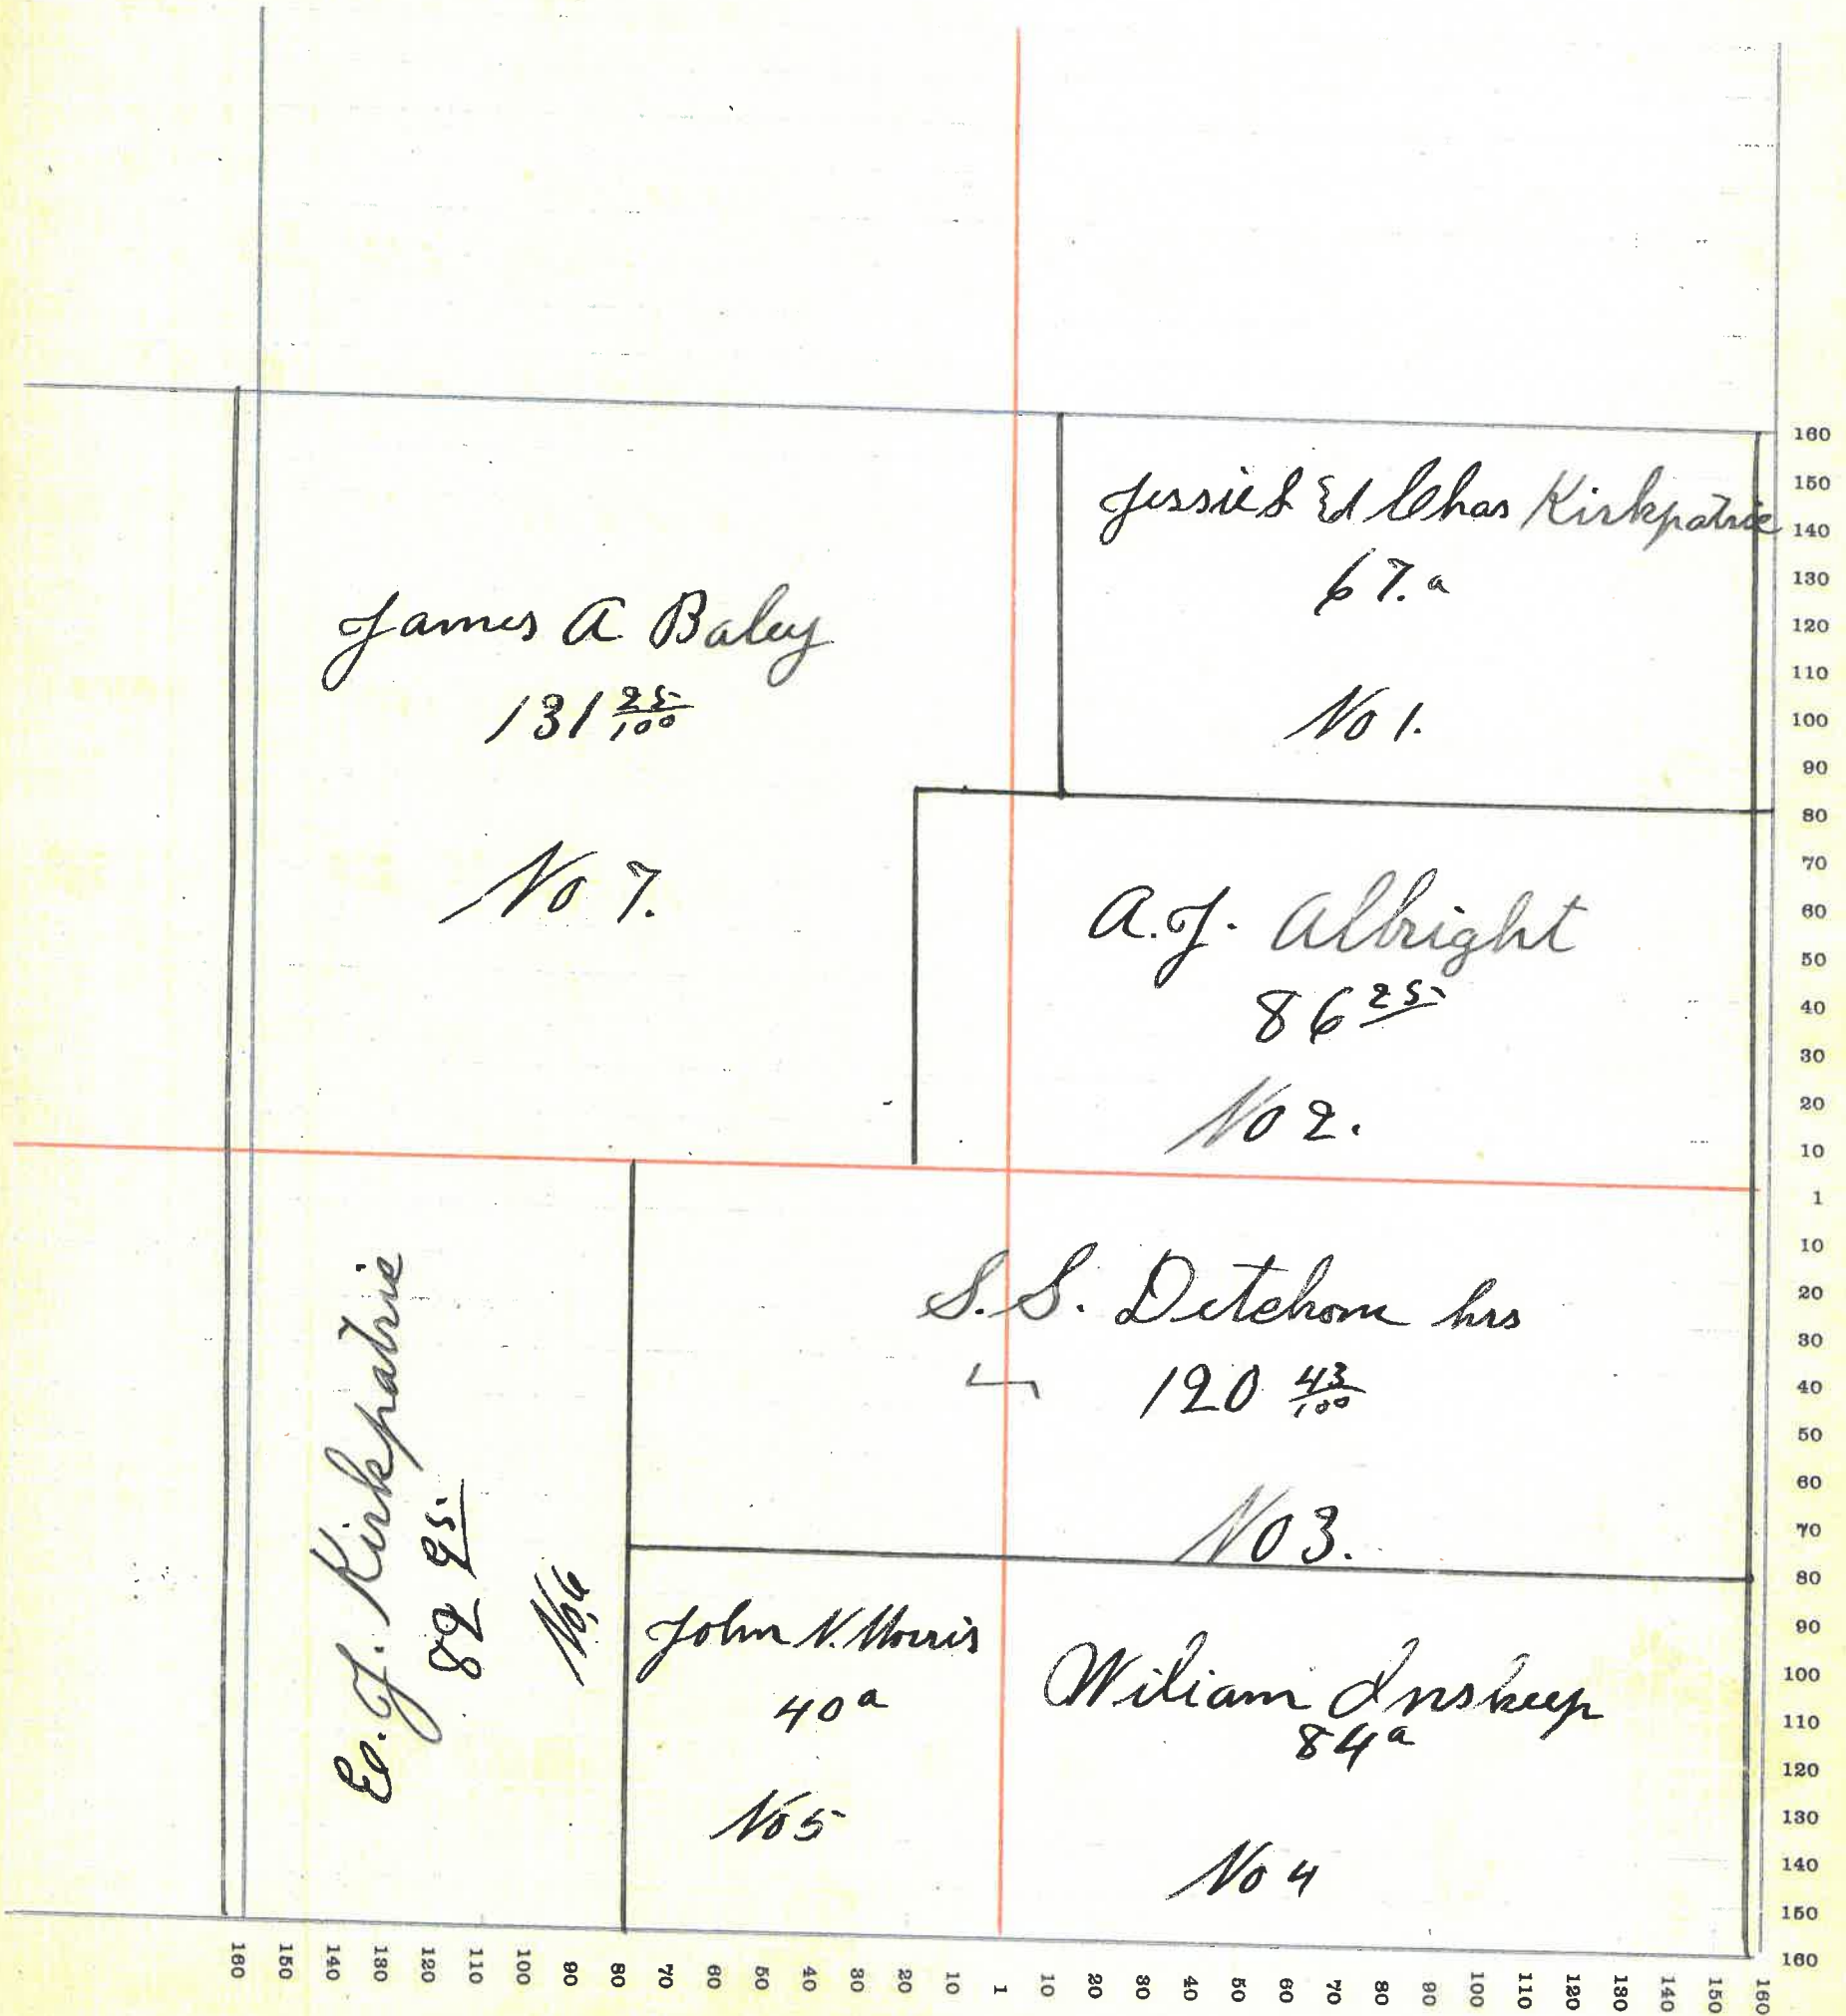 Jessie S Ed Chas Kirkpatric
67.a
No 1.
James A Baley
131 25/100
No 7.
A.J. Albright
86 25
No 2.
S.S. Detchon hrs
120 43/100
No 3.
Ed. J. Kirkpatric
82 95
No. 6
John N. Morris
40 a
No 5
Wiliam Inskeep
84 a
No 4
160
150
140
130
120
110
100
90
80
70
60
50
40
30
20
10
1
10
20
30
40
50
60
70
80
90
100
110
120
130
140
150
160
160 150 140 130 120 110 100 90 80 70 60 50 40 30 20 10 1 10 20 30 40 50 60 70 80 90 100 110 120 130 140 150 160